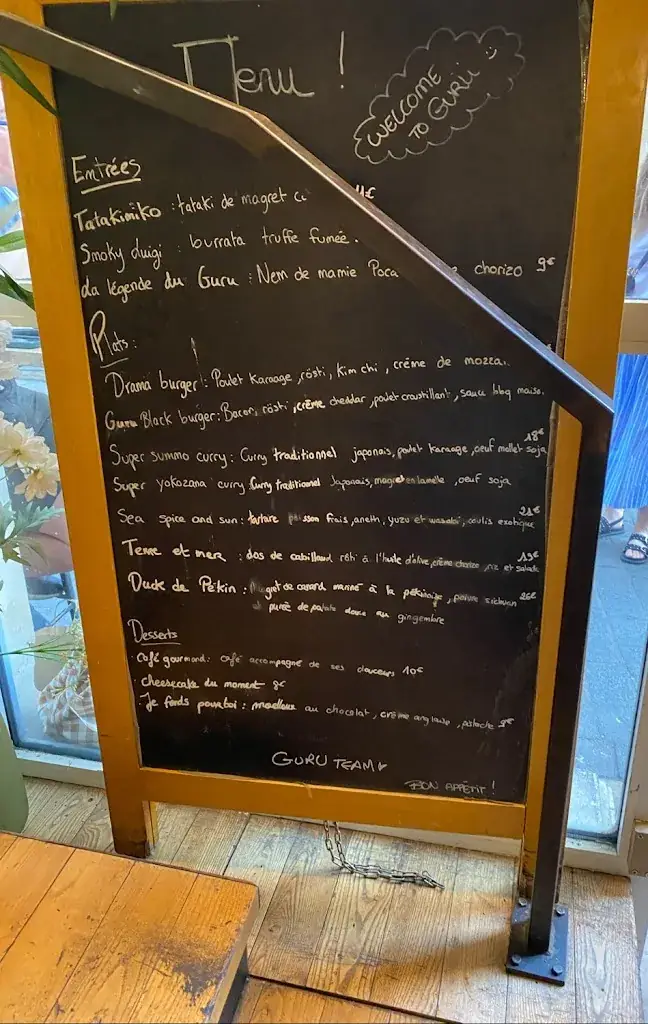 Menu !
WELCOME
TO GURU
Entrées
Tatakimiko : tataki de magret
Smoky Luigi : burrata truffe fumée.
La légende du Guru : Nem de mamie chorizo 9€
Plats :
Drama burger : Poulet Karaage, rösti, Kim chi, crème de mozza.
Guru Black burger: Bacon, rösti, crème cheddar, poulet croustillant, sauce bbq maison.
18€
Super summo curry : Curry traditionnel japonais, poulet karaage, oeuf mollet soja
Super yokozana curry Curry traditionnel Japonais, magret en lamelle, oeuf soja
Sea spice and sun : tartare poisson frais, aneth, yuzu et wasabi, coulis exotique
Terre et mer : dos de cabillaud rôti à l'huile d'olive, crème chorizo, riz et salade
Duck de Pékin : Magret de canard mariné à la pékinoise, poivre sichuan 26€
purée de patate douce au gingembre
Desserts
Café gourmand: café accompagné de ses douceurs 10€
Cheesecake du moment 8€
Je fonds pour toi : moelleux au chocolat, crème anglaise, pistache
GURU TEAM
BON APPÉTIT !